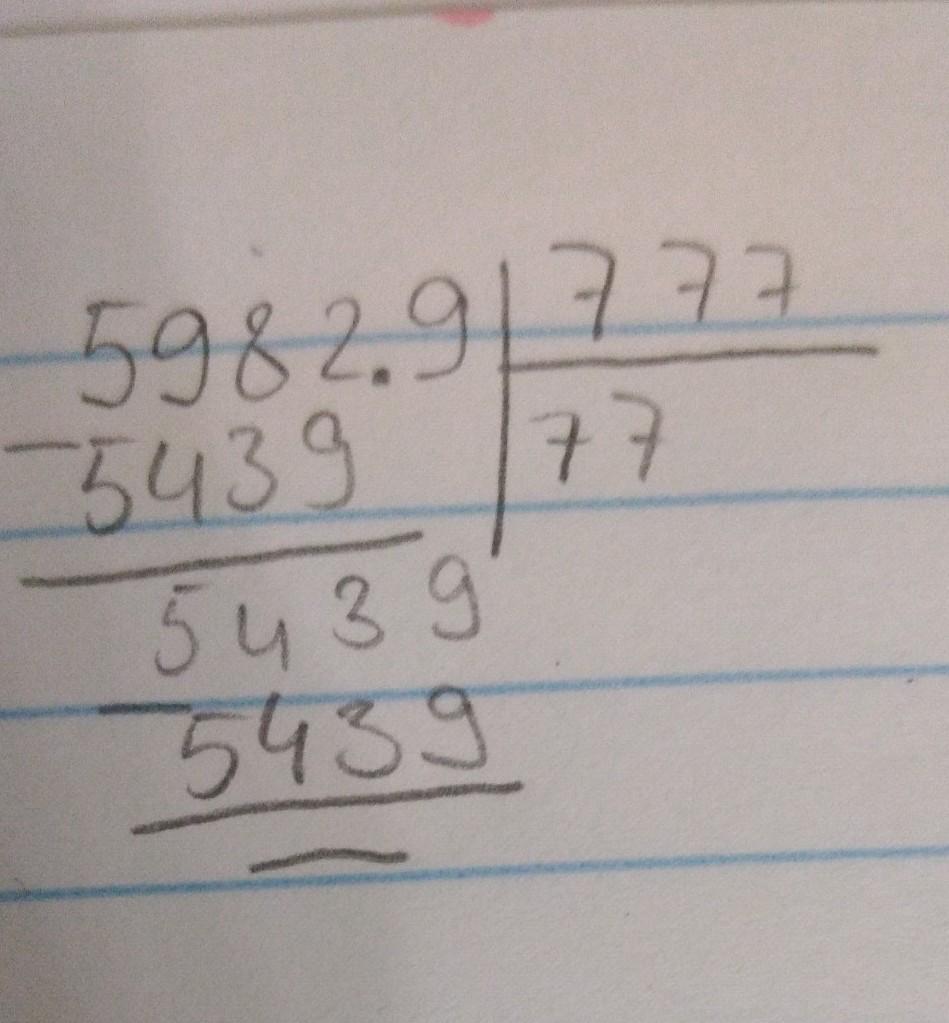 5982.9 777
77
-5439
5439
-5439
—